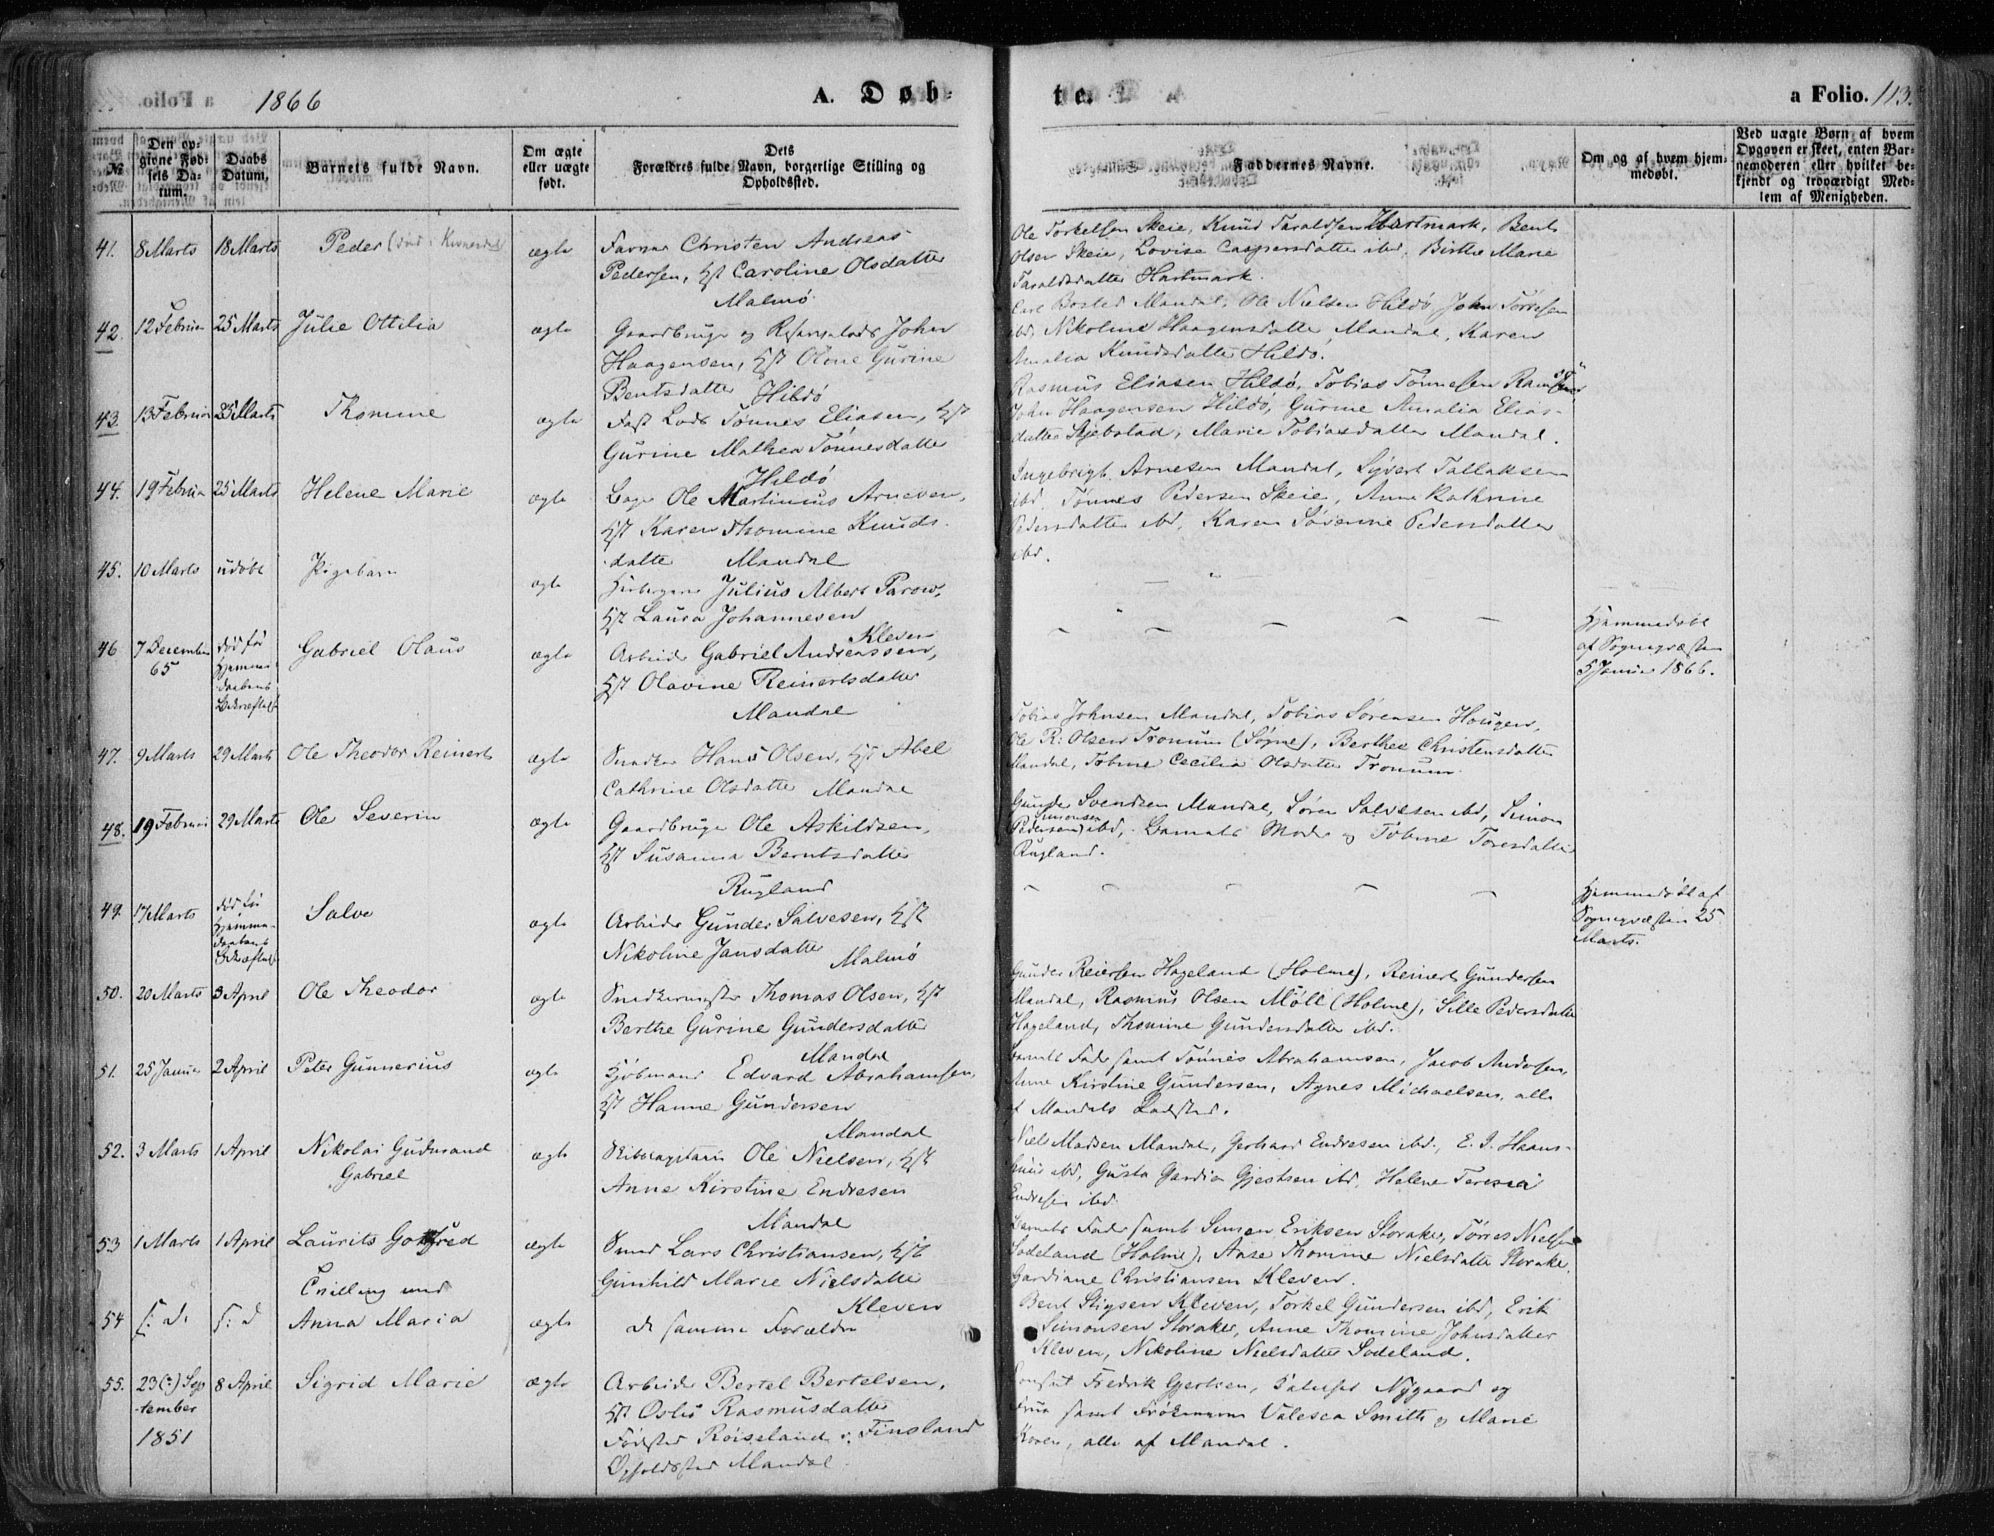 1866
A. Døb-
te.
a Folio. 113.
№
Den op-
givne Fød-
sels Da-
tum.
Daabs
Datum.
Barnets fulde Navn.
Om ægte
eller uægte
født.
Dets
Forældres fulde Navn, borgerlige Stilling og
Opholdssted.
Faddernes Navne.
Om og af hvem hjem-
medøbt.
Ved uægte Børn af hvem
Opgaven er skeet, enten Bar-
nemoderen eller hvilket be-
kjendt og troværdigt Med-
lem af Menigheden.
41. 8 Marts 18 Marts Peder ægte
Farver Christen Andreas
Pedersen, Hst Caroline Olsdatter
Malmø
Ole Torkelsen Skeie, Knud Taraldsen Hartmark, Bent
Olsen Skeie, Lovise Caspersdatter ibd, Birthe Marie
Taraldsdatter Hartmark.
42. 12 Februar 25 Marts Julie Ottilia ægte
Gaardbruger og Reservelods John
Haagensen, Hst Olene Gurine
Bentsdatter Hildø
Carl Bosted Mandal, Ole Nielsen Hildø, John Torresen
ibd, Nikoline Haagensdatter Mandal, Karen
Amalia Knudsdatter Hildø.
43. 13 Februar 25 Marts Thomine ægte
Fast Lods Tønnes Eliasen, Hst
Gurine Mathea Tønnesdatter
Hildø
Rasmus Eliasen Hildø, Tobias Tønnesen
John Haagensen Hildø, Gurine Amalia Elias-
datter Skjebstad, Marie Tobiasdatter Mandal.
44. 19 Februar 25 Marts Helene Marie ægte
Bager Ole Martinius Arnesen,
Hst Karen Thomine Knuds-
datter Mandal
Ingebrigt Arnesen Mandal, Syvert Tallaksen
ibd, Tønnes Pedersen Skeie, Anne Kathrine
Pedersdatter ibd, Karen Sørenne Pedersdatter
ibd.
45. 10 Marts udøbt Pigebarn ægte
Julius Albert Parow,
Hst Laura Johannesen
Kleven
46 7 December
65
død før
Hjemme-
daabens
Bekræftelse
Gabriel Olaus ægte
Arbeider Gabriel Andreassen,
Hst Olavine Reinertsdatter
Mandal
Hjemmedøbt
af Sognepræsten
5 Januar 1866.
47. 9 Marts 29 Marts Ole Theodor Reinert ægte
Snedker Hans Olsen, Hst Abel
Cathrine Olsdatter Mandal
Tobias Johnsen Mandal, Tobias Sørensen Hougen,
Ole R. Olsen Tronum (Søgne), Berthee Christensdatter
Mandal, Tobine Cecilia Olsdatter Tronum.
48. 19 Februar 29 Marts Ole Severin ægte
Gaardbruger Ole Askildsen,
Hst Susanna Berntsdatter
Rugland
Gunder Svendsen Mandal, Søren Salvesen ibd, Simon
Simonsen
Pedersen) ibd, Barnets Moder og Tobine Toresdatter
Rugland.
49. 17 Marts
død før
Hjemme-
daabens
Bekræftelse
Salve ægte
Arbeider Gunder Salvesen, Hst
Nikoline Jansdatter
Malmø
Hjemmedøbt af
Sognepræsten 25
Marts.
50. 20 Marts 3 April Ole Theodor ægte
Snedkermester Thomas Olsen, Hst
Berthe Gurine Gundersdatter
Mandal
Gunder Reiersen Hageland (Holme), Reinert Gundersen
Mandal, Rasmus Olsen Møll (Holme), Sille Pedersdatter
Hageland, Thomine Gundersdatter ibd.
51. 25 Januar 2 April Peter Gunnerius ægte
Kjøbmand Edvard Abrahamsen,
Hst Hanne Gundersen
Mandal
Barnets Fader samt Tønnes Abrahamsen, Jacob Andersen,
Anne Kirstine Gundersen, Agnes Michaelsen, alle
af Mandals Ladsted.
52. 3 Marts 1 April Nikolai Gudmand
Gabriel
ægte
Skibscaptain Ole Nielsen, Hst
Anne Kirstine Endresen
Mandal
Niels Madsen Mandal, Gerhard Endresen ibd, E. I. Haans-
ibd, Gusta Gardia Gjertsen ibd, Helene Teresia
Endresen ibd.
53 1 Marts 1 April Laurits Gotfred ægte
Tvilling med
Smed Lars Christiansen, Hst
Gunhild Marie Nielsdatter
Kleven
Barnets Fader samt Simon Eriksen Storaker, Tørres Nielsen
Sodeland (Holme), Aase Thomine Nielsdatter Storaker,
Gardiane Christiansen Kleven.
54 s: d. s: d Anna Maria ægte
de samme Forældre
Bent Stigsen Kleven, Torkel Gundersen ibd, Erik
Simonsen Storaker, Anne Thomine Johnsdatter
Kleven, Nikoline Nielsdatter Sodeland.
55. 23(?) Sep
-tember
1851
8 April Sigrid Marie ægte
Arbeider Bertel Bertelsen,
Hst Oslis Rasmusdatter
Fødested Røiseland i Finsland
Opholdssted Mandal.
Consul Fredrik Gjertsen, Nygaard og
Frue samt Frøknerne Valesca Smith og Marie
Koren, alle af Mandal.